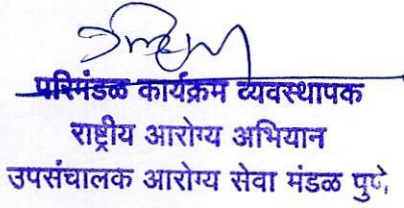 परिमंडळ कार्यक्रम व्यवस्थापक
राष्ट्रीय आरोग्य अभियान
उपसंचालक आरोग्य सेवा मंडळ पुणे.